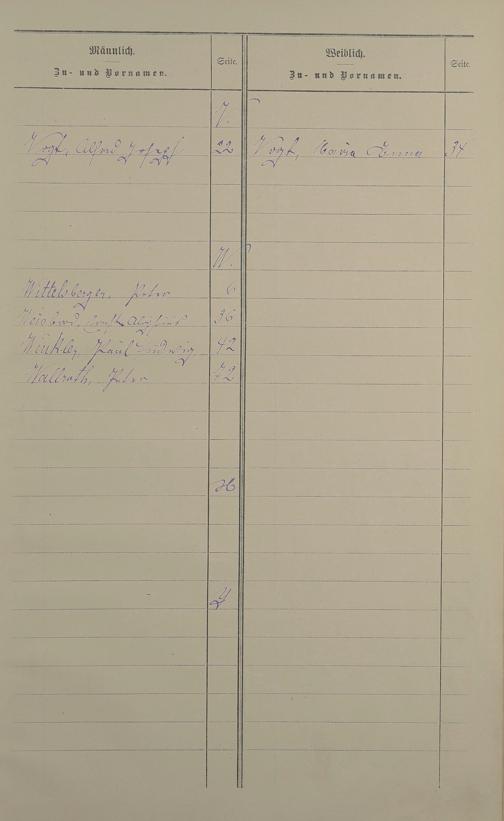 Männlich.
Zu- und Vornamen.
Seite.
Weiblich.
Zu- und Vornamen.
Seite.
V.
Vogt, Alfred Joseph 22 Vogt, Maria Emma 34
W.
Wittelsberger, Peter 6
36
Winkler, Paul Ludwig 42
Wallrath, Peter 72
X
Y